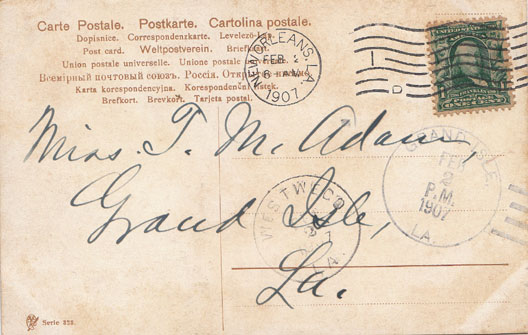 Carte Postale. Postkarte. Cartolina postale.
Dopisnice. Correspondenzkarte. Levelezö-Lap.
Post card. Weltpostverein. Briefkort.
Union postale universelle. Unione postale
Всемірный почтовый союзъ. Россія.
Karta korespondencyjna. Korespondenční lístek.
Brefkort. Brevkort. Tarjeta postal.
NEW ORLEANS, LA.
FEB 2
6 AM
1907
D
Miss. T. M. Adam,
Grand Isle,
La.
GRAND ISLE.
FEB
2
P.M.
1907
LA.
WESTWEGO
LA.
Serie